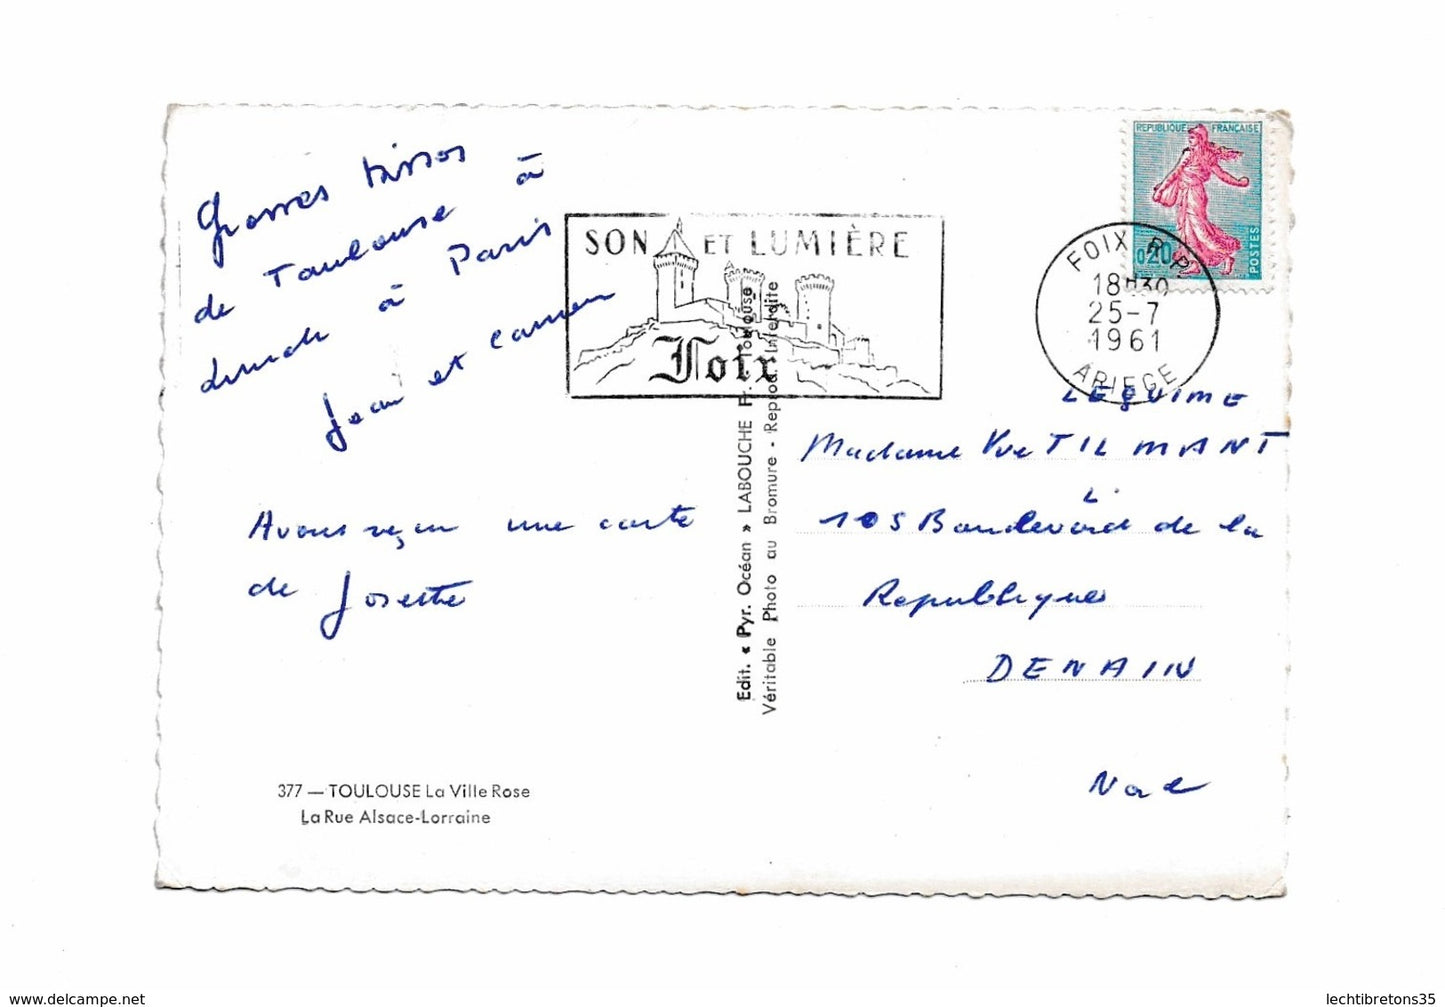 Grosses bises
de Toulouse à
lundi à Paris
Jean et Carmen
Avons reçu une carte
de Josette
377 — TOULOUSE La Ville Rose
La Rue Alsace-Lorraine
SON ET LUMIÈRE
Foix
Edit. « Pyr. Océan » LABOUCHE Fr. Toulouse
Véritable Photo au Bromure - Reprod. Interdite
REPUBLIQUE FRANÇAISE
0,20
POSTES
FOIX R.P.
18H30
25-7
1961
ARIEGE
LEQUIME
Madame Vve TILMANT
L
105 Boulevard de la
Republique
DENAIN
Nord
lechtibretons35